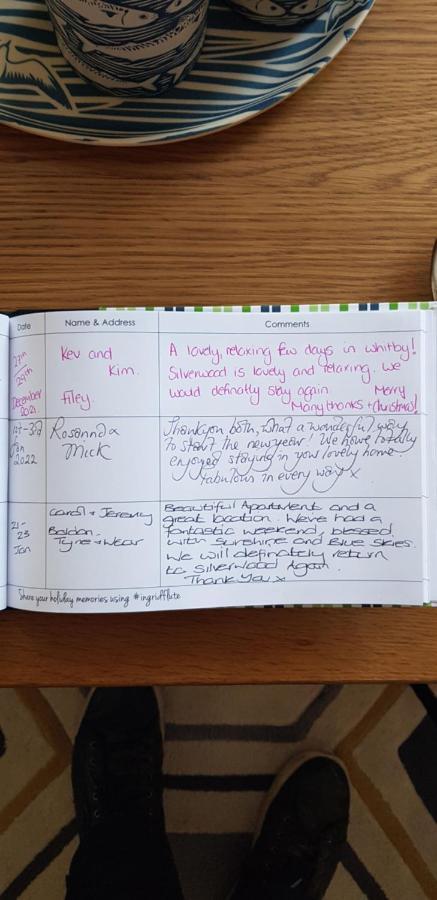 Date Name & Address Comments
27th
29th
December
2021
Kev and
Kim.
Filey.
A lovely, relaxing few days in whitby!
Silverwood is lovely and relaxing. We
would definatly stay again. Merry
Many thanks + Christmas!
1st-3rd
Jan
2022
Rosanna
Mick
Thankyou both, what a wonderful way
to start the new year! We have totally
enjoyed staying in your lovely home.
Fabulous in every way x
21-
23
Jan
Carol + Jeremy
Boldon.
Tyne + Wear
Beautiful Apartment and a
great location. We've had a
fantastic weekend, blessed
with sunshine and Blue skies.
We will definately return
to Silverwood Again.
Thank You x
Share your holiday memories using #ingridflute